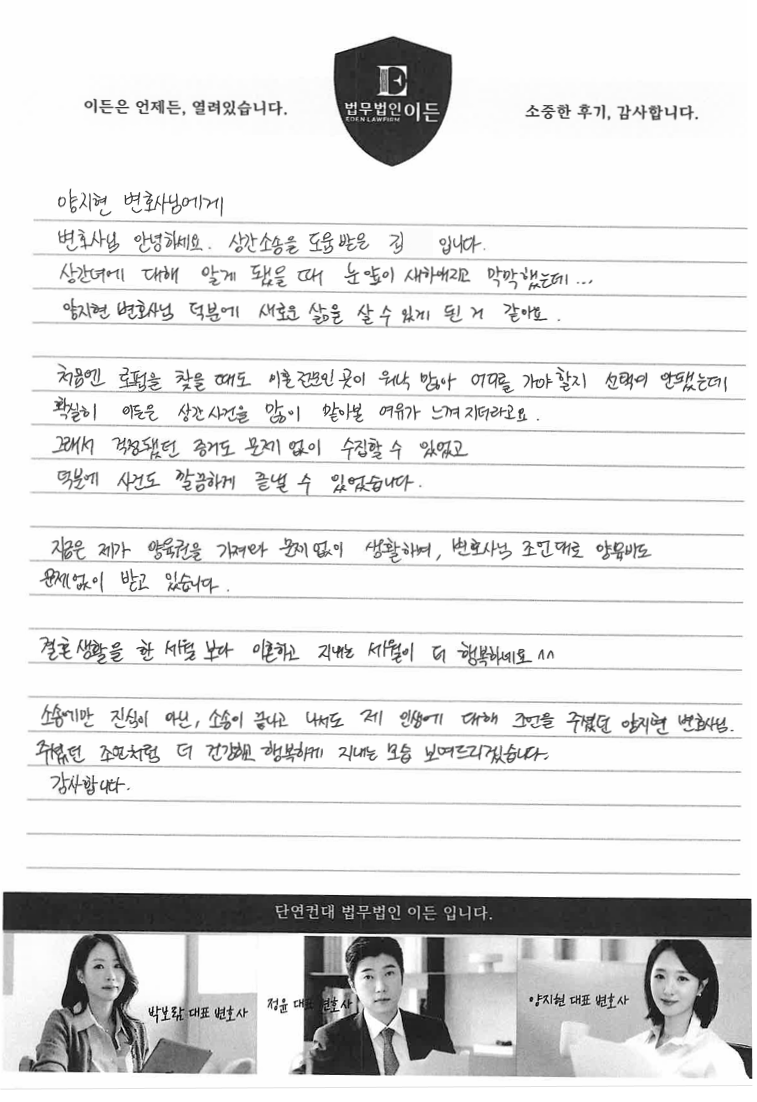 이든은 언제든, 열려있습니다.
E
법무법인 이든
EDEN LAWFIRM
소중한 후기, 감사합니다.
양지현 변호사님에게
변호사님 안녕하세요. 상간소송을 도움받은 김 입니다.
상간녀에 대해 알게 됐을 때 눈앞이 새하얘지고 막막했는데...
양지현 변호사님 덕분에 새로운 삶을 살 수 있게 된 거 같아요.
처음엔 로펌을 찾을 때도 이혼전문인 곳이 워낙 많아 어디를 가야할지 선택이 안됐는데
확실히 이든은 상간사건을 많이 맡아본 여유가 느껴지더라고요.
그래서 걱정됐던 증거도 문제 없이 수집할 수 있었고
덕분에 사건도 깔끔하게 끝낼 수 있었습니다.
지금은 제가 양육권을 가져와 문제없이 생활하며, 변호사님 조언대로 양육비도
문제없이 받고 있습니다.
결혼생활을 한 세월 보다 이혼하고 지내는 세월이 더 행복하네요 ^^
소송에만 진심이 아닌, 소송이 끝나고 나서도 제 인생에 대해 조언을 주셨던 양지현 변호사님.
주셨던 조언처럼 더 건강하고 행복하게 지내는 모습 보여드리겠습니다.
감사합니다.
단연컨대 법무법인 이든 입니다.
박보람 대표 변호사
정윤 대표 변호사
양지현 대표 변호사